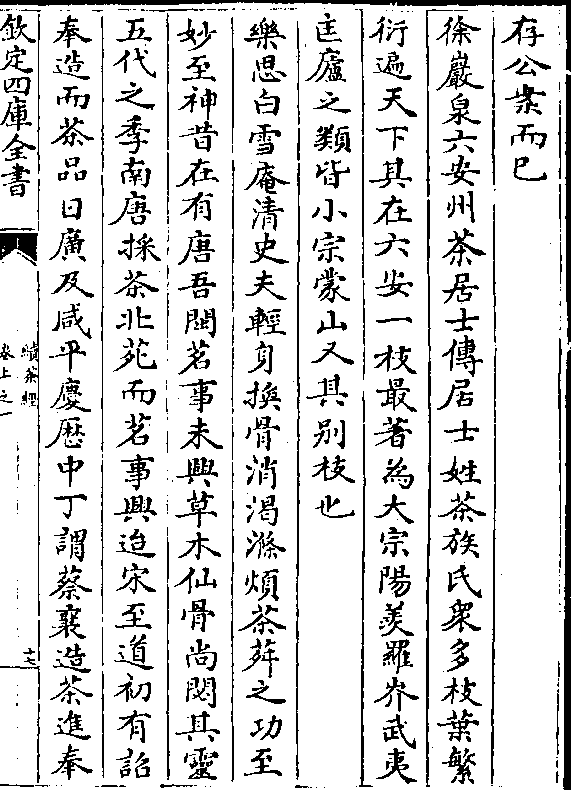 存公案而已
徐巖泉六安州茶居士傳居士姓茶族氏衆多枝葉繁
衍遍天下其在六安一枝最著為大宗陽羨羅岕武夷
匡廬之類皆小宗蒙山又其别枝也
樂思白雪庵清史夫輕身換骨消渴滌煩茶荈之功至
妙至神昔在有唐吾閩茗事未興草木仙骨尚閟其靈
五代之季南唐採茶北苑而茗事興迨宋至道初有詔
奉造而茶品日廣及咸平慶厯中丁謂蔡襄造茶進奉
欽定四庫全書
續茶經
卷上之一
十七